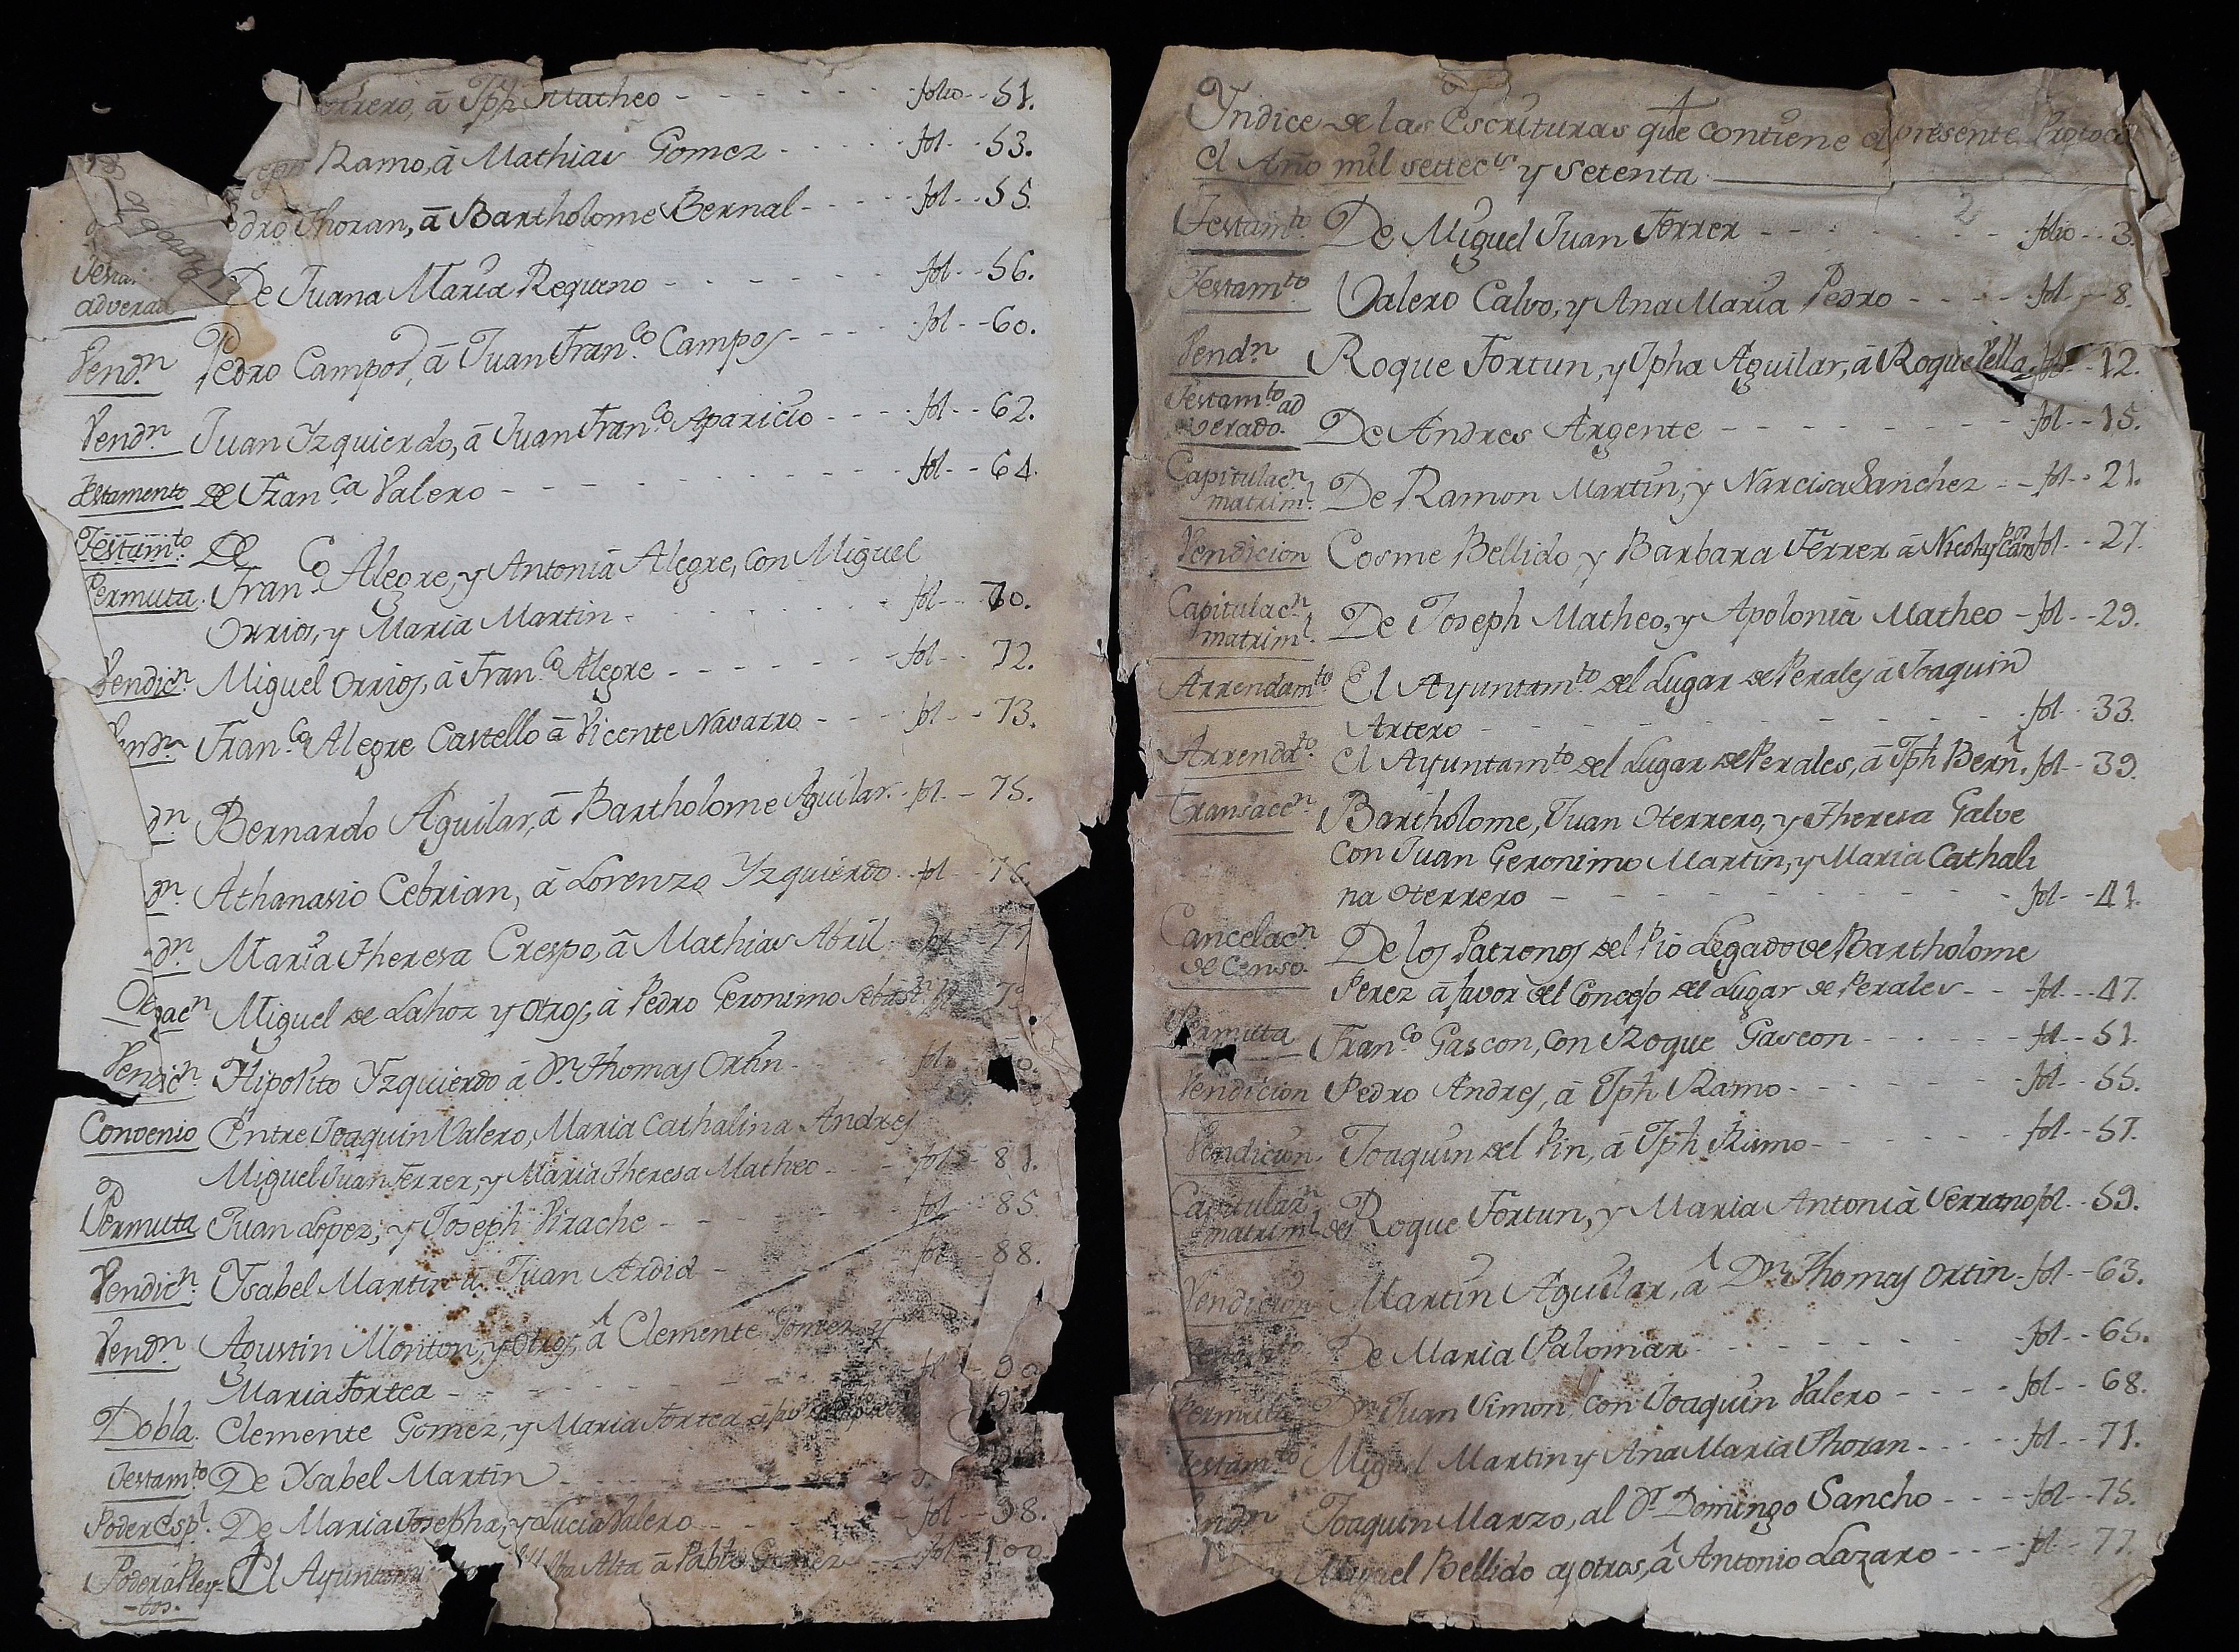 Ferrero, á Jph Matheo - - - - - - - folio - - 51.
Ramo, á Mathias Gomez - - - - - fol - - 53.
Thoran, á Bartholome Bernal - - - - - fol - - 55.
adverad De Juana Maria Requeno - - - - - - fol - - 56.
Vend.n Pedro Campos, á Juan Fran.co Campos - - - - fol - - 60.
Vend.n Juan Yzquierdo, á Juan Fran.co Aparicio - - - - fol - - 62.
Testamento de Fran.ca Valero - - - - - - - - - - - fol - - 64.
Testam.to De
Permuta. Fran.co Alegre, y Antonia Alegre, con Miguel
Orrios, y Maria Martin - - - - - - - fol - - 70.
Vendic.n Miguel Orrios, á Fran.co Alegre - - - - - - - fol - - 72.
Fran.co Alegre Castello á Vicente Navarro - - - fol - - 73.
Bernardo Aguilar, á Bartholome Aguilar. - fol - - 75.
Athanasio Cebrian, á Lorenzo Yzquierdo - fol - - 76.
Maria Theresa Crespo, á Mathias Abril fol - 77
Miguel de Lahoz y otros, á Pedro Geronimo Sebast.n
Vendic.n Hipolito Yzquierdo á D.n Thomas Ortin - - - fol
Convenio Entre Joaquin Valero, Maria Cathalina Andres
Miguel Juan Ferrer, y Maria Theresa Matheo - - - fol - - 81.
Permuta Juan Lopez, y Joseph Virache - - - - - - fol - - 85.
Vendic.n Ysabel Martin á Juan Ardid - - - fol - - 88.
Vend.n Agustin Monton, y otros, á Clemente Gomez y
Maria Fortea - - - - - - - fol - - 90
Dobla. Clemente Gomez, y Maria Fortea
Testam.to De Ysabel Martin - - - - -
Poder Esp.l De Maria Josepha, y Lucia Valero - - - - - fol - - 98.
Poder á Pley- El Ayuntami Alta á Pablo Gomez - - - fol - - 100
-tos.
Yndice de las Escrituras que contiene el presente Protoco
el Año mil settec.s y setenta
Testam.to De Miguel Juan Ferrer - - - - - - - - folio - - 3.
Testam.to Valero Calvo, y Ana Maria Pedro - - - - fol - - 8.
Vend.n Roque Fortun, y Jpha Aguilar, á Roque Vella. fol - - 12.
Testam.to ad
verado. De Andres Argente - - - - - - - - - fol - - 15.
Capitulac.n
matrim.l De Ramon Martin, y Narcisa Sanchez - - fol - - 21.
Vendicion Cosme Bellido y Barbara Ferrer á Nicolas fol - - 27.
Capitulac.n
matrim.l De Joseph Matheo, y Apolonia Matheo - fol - - 29.
Arrendam.to El Ayuntam.to del Lugar de Perales á Joaquin
Artero - - - - - - - - - - fol - - 33.
Arrendt.o El Ayuntam.to del Lugar de Perales, á Jph Bern. fol - - 39.
Transacc.n Bartholome, Juan Herrero, y Theresa Galve
con Juan Geronimo Martin, y Maria Cathali
na Herrero - - - - - - - - - - fol - - 41.
Cancelac.n
de Censo. De los Patronos del Pio Legado de Bartholome
Perez á favor del Concejo del Lugar de Perales - - fol - - 47.
Permutta Fran.co Gascon, con Roque Gascon - - - - - - fol - - 51.
Vendicion Pedro Andres, á Jph Ramo - - - - - - - fol - - 55.
Vendicion. Joaquin del Pin, á Jph Ramo - - - - - - fol - - 57.
Capitulac.n
matrim.l de Roque Fortun, y Maria Antonia Serrano fol - - 59.
Vendicion Martin Aguilar, á D.n Thomas Ortin - fol - - 63.
De Maria Palomar - - - - - - - fol - - 65.
Permuta D.n Juan Simon, con Joaquin Valero - - - - fol - - 68.
Testam.to Miguel Martin y Ana Maria Thoran - - - - fol - - 71.
Joaquin Marzo, al D.r Domingo Sancho - - - fol - - 75.
Miguel Bellido y otros, á Antonio Lazaro - - - fol - - 77.